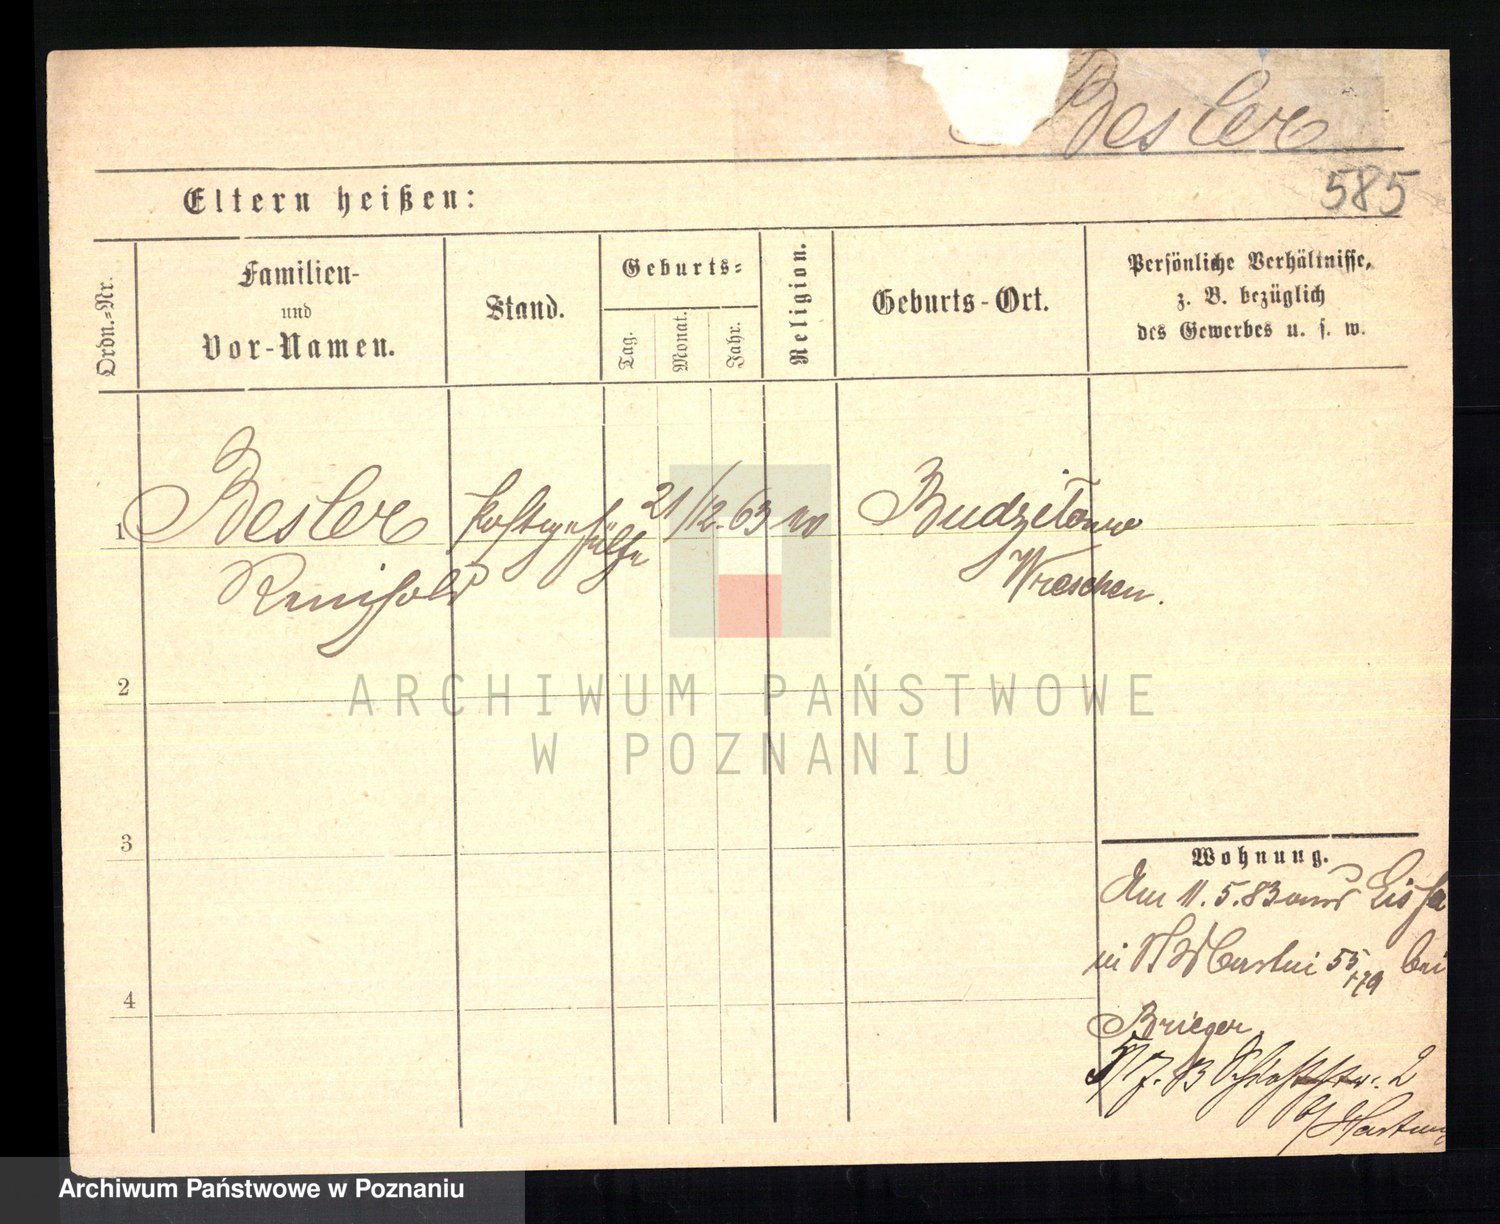 Besler
585
Eltern heißen:
Ordn.-Nr.
Familien-
und
Vor-Namen.
Stand.
Geburts-
Tag.
Monat.
Jahr.
Religion.
Geburts-Ort.
Persönliche Verhältnisse,
z. B. bezüglich
des Gewerbes u. s. w.
1
Besler
Reinhold
Postgehülfe
21/12. 63
Budzilowo
Wreschen.
2
3
4
Wohnung.
Am 11. 5. 83 aus
in St Martin 55 bei
Brieger
5/7. 83 Schloßstr. 2
b/ Hartung
ARCHIWUM PAŃSTWOWE
W POZNANIU
Archiwum Państwowe w Poznaniu